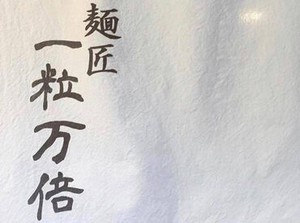 麺匠
一粒万倍